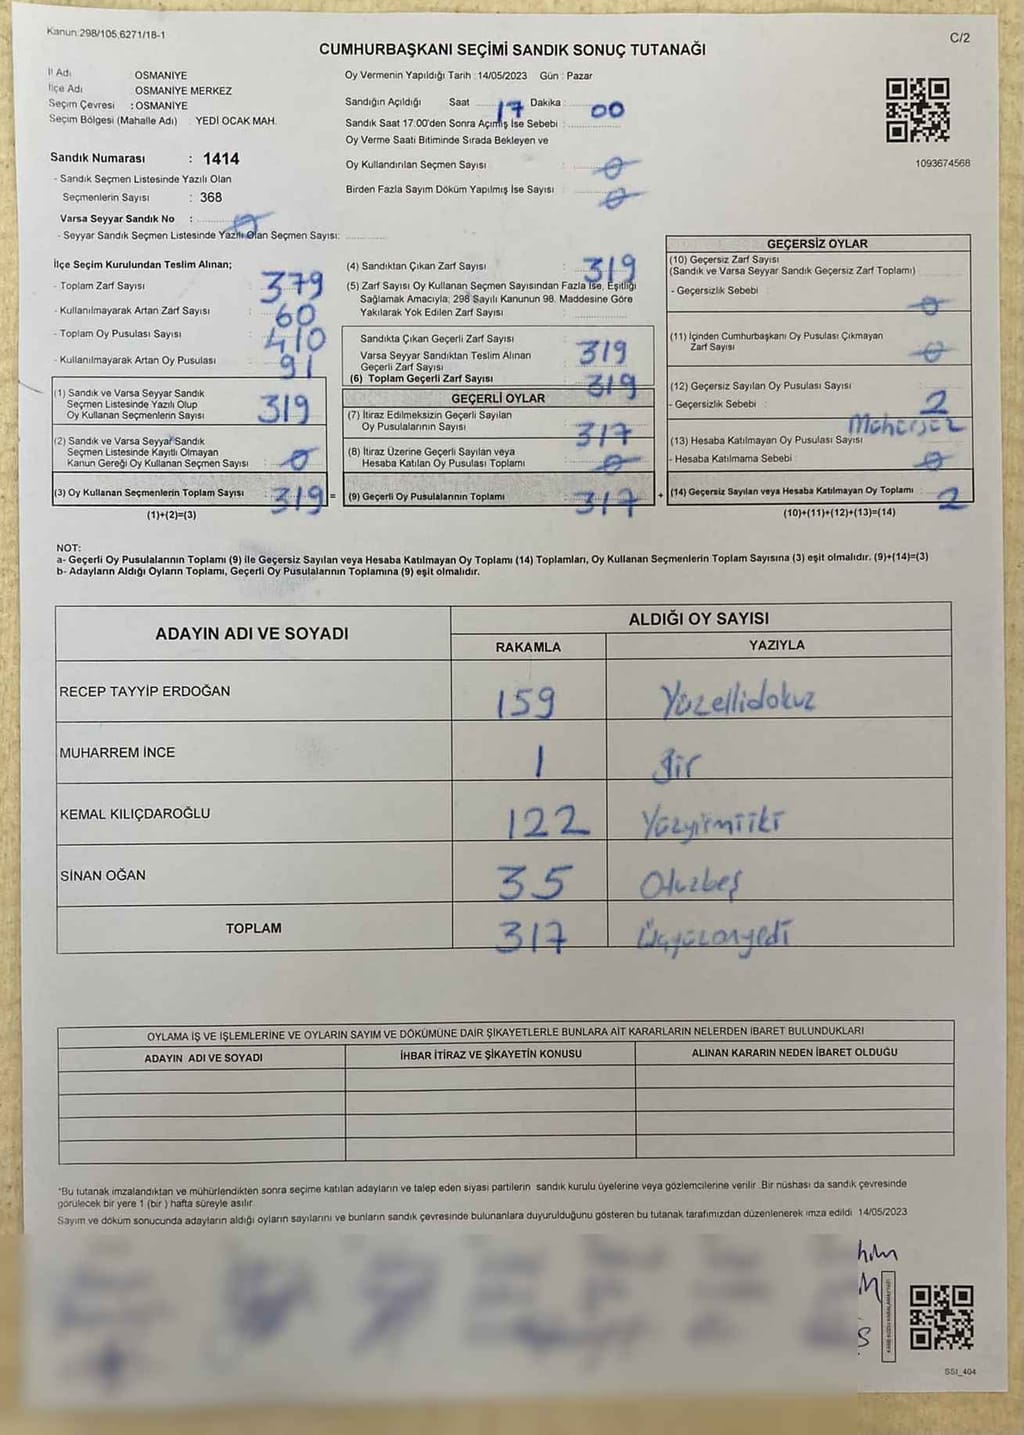 Kanun 298/105,6271/18-1
C/2
CUMHURBAŞKANI SEÇİMİ SANDIK SONUÇ TUTANAĞI
İl Adı OSMANİYE
İlçe Adı OSMANİYE MERKEZ
Seçim Çevresi : OSMANİYE
Seçim Bölgesi (Mahalle Adı) YEDİ OCAK MAH.
Sandık Numarası : 1414
- Sandık Seçmen Listesinde Yazılı Olan
Seçmenlerin Sayısı : 368
Varsa Seyyar Sandık No : 0
- Seyyar Sandık Seçmen Listesinde Yazılı Olan Seçmen Sayısı:
Oy Vermenin Yapıldığı Tarih : 14/05/2023 Gün : Pazar
Sandığın Açıldığı Saat 17 Dakika : 00
Sandık Saat 17:00'den Sonra Açılmış İse Sebebi :
Oy Verme Saati Bitiminde Sırada Bekleyen ve
Oy Kullandırılan Seçmen Sayısı : 0
Birden Fazla Sayım Döküm Yapılmış İse Sayısı : 0
1093674568
İlçe Seçim Kurulundan Teslim Alınan;
- Toplam Zarf Sayısı : 379
- Kullanılmayarak Artan Zarf Sayısı : 60
- Toplam Oy Pusulası Sayısı : 410
- Kullanılmayarak Artan Oy Pusulası : 91
(1) Sandık ve Varsa Seyyar Sandık
Seçmen Listesinde Yazılı Olup
Oy Kullanan Seçmenlerin Sayısı : 319
(2) Sandık ve Varsa Seyyar Sandık
Seçmen Listesinde Kayıtlı Olmayan
Kanun Gereği Oy Kullanan Seçmen Sayısı : 0
(3) Oy Kullanan Seçmenlerin Toplam Sayısı : 319 =
(1)+(2)=(3)
(4) Sandıktan Çıkan Zarf Sayısı : 319
(5) Zarf Sayısı Oy Kullanan Seçmen Sayısından Fazla İse, Eşitliği
Sağlamak Amacıyla; 298 Sayılı Kanunun 98. Maddesine Göre
Yakılarak Yok Edilen Zarf Sayısı :
Sandıkta Çıkan Geçerli Zarf Sayısı : 319
Varsa Seyyar Sandıktan Teslim Alınan
Geçerli Zarf Sayısı
(6) Toplam Geçerli Zarf Sayısı : 319
GEÇERLİ OYLAR
(7) İtiraz Edilmeksizin Geçerli Sayılan
Oy Pusulalarının Sayısı : 317
(8) İtiraz Üzerine Geçerli Sayılan veya
Hesaba Katılan Oy Pusulası Toplamı : 0
(9) Geçerli Oy Pusulalarının Toplamı : 317 +
GEÇERSİZ OYLAR
(10) Geçersiz Zarf Sayısı
(Sandık ve Varsa Seyyar Sandık Geçersiz Zarf Toplamı)
- Geçersizlik Sebebi : 0
(11) İçinden Cumhurbaşkanı Oy Pusulası Çıkmayan
Zarf Sayısı : 0
(12) Geçersiz Sayılan Oy Pusulası Sayısı
- Geçersizlik Sebebi : 2
Mühürsüz
(13) Hesaba Katılmayan Oy Pusulası Sayısı
- Hesaba Katılmama Sebebi : 0
(14) Geçersiz Sayılan veya Hesaba Katılmayan Oy Toplamı : 2
(10)+(11)+(12)+(13)=(14)
NOT:
a- Geçerli Oy Pusulalarının Toplamı (9) ile Geçersiz Sayılan veya Hesaba Katılmayan Oy Toplamı (14) Toplamları, Oy Kullanan Seçmenlerin Toplam Sayısına (3) eşit olmalıdır. (9)+(14)=(3)
b- Adayların Aldığı Oyların Toplamı, Geçerli Oy Pusulalarının Toplamına (9) eşit olmalıdır.
ADAYIN ADI VE SOYADI
ALDIĞI OY SAYISI
RAKAMLA YAZIYLA
RECEP TAYYİP ERDOĞAN 159 Yüzellidokuz
MUHARREM İNCE 1 Bir
KEMAL KILIÇDAROĞLU 122 Yüzyirmiiki
SİNAN OĞAN 35 Otuzbeş
TOPLAM 317 Üçyüzonyedi
OYLAMA İŞ VE İŞLEMLERİNE VE OYLARIN SAYIM VE DÖKÜMÜNE DAİR ŞİKAYETLERLE BUNLARA AİT KARARLARIN NELERDEN İBARET BULUNDUKLARI
ADAYIN ADI VE SOYADI İHBAR İTİRAZ VE ŞİKAYETİN KONUSU ALINAN KARARIN NEDEN İBARET OLDUĞU
*Bu tutanak imzalandıktan ve mühürlendikten sonra seçime katılan adayların ve talep eden siyasi partilerin sandık kurulu üyelerine veya gözlemcilerine verilir. Bir nüshası da sandık çevresinde
görülecek bir yere 1 (bir) hafta süreyle asılır.
Sayım ve döküm sonucunda adayların aldığı oyların sayılarını ve bunların sandık çevresinde bulunanlara duyurulduğunu gösteren bu tutanak tarafımızdan düzenlenerek imza edildi. 14/05/2023
SSI_404